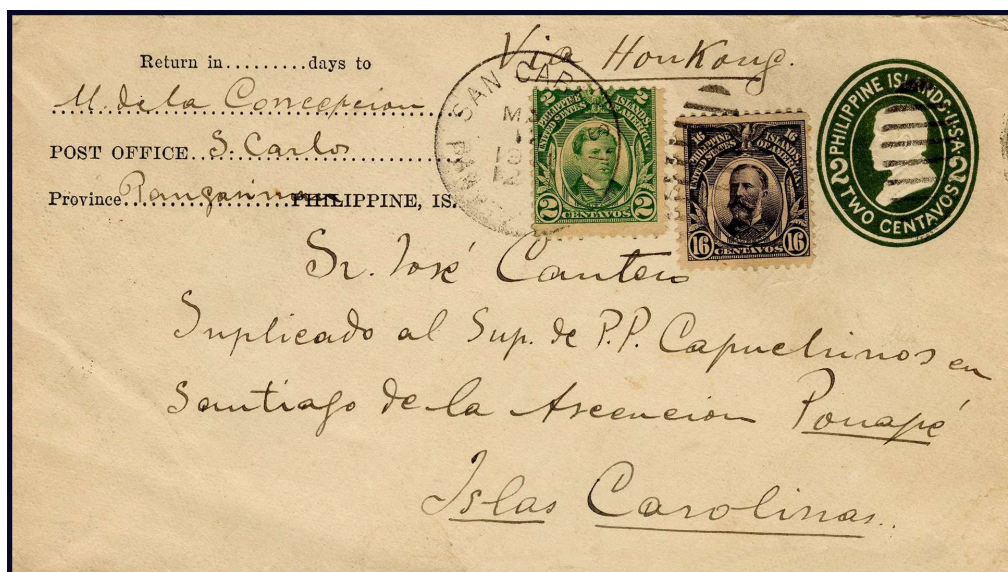 Via HonKong.
Return in.........days to
M. de la Concepcion
POST OFFICE S. Carlos
Province PHILIPPINE, IS.
SAN CAR
2 2
PHILIPPINE ISLANDS
UNITED STATES OF AMERICA
2 CENTAVOS 2
16 16
PHILIPPINE ISLANDS
UNITED STATES OF AMERICA
16 CENTAVOS 16
PHILIPPINE ISLANDS·U.S.A.
2 2
TWO CENTAVOS
Sr. José Cantero
Suplicado al Sup. de P.P. Capuchinos en
Santiago de la Ascencion Ponapé
Islas Carolinas..